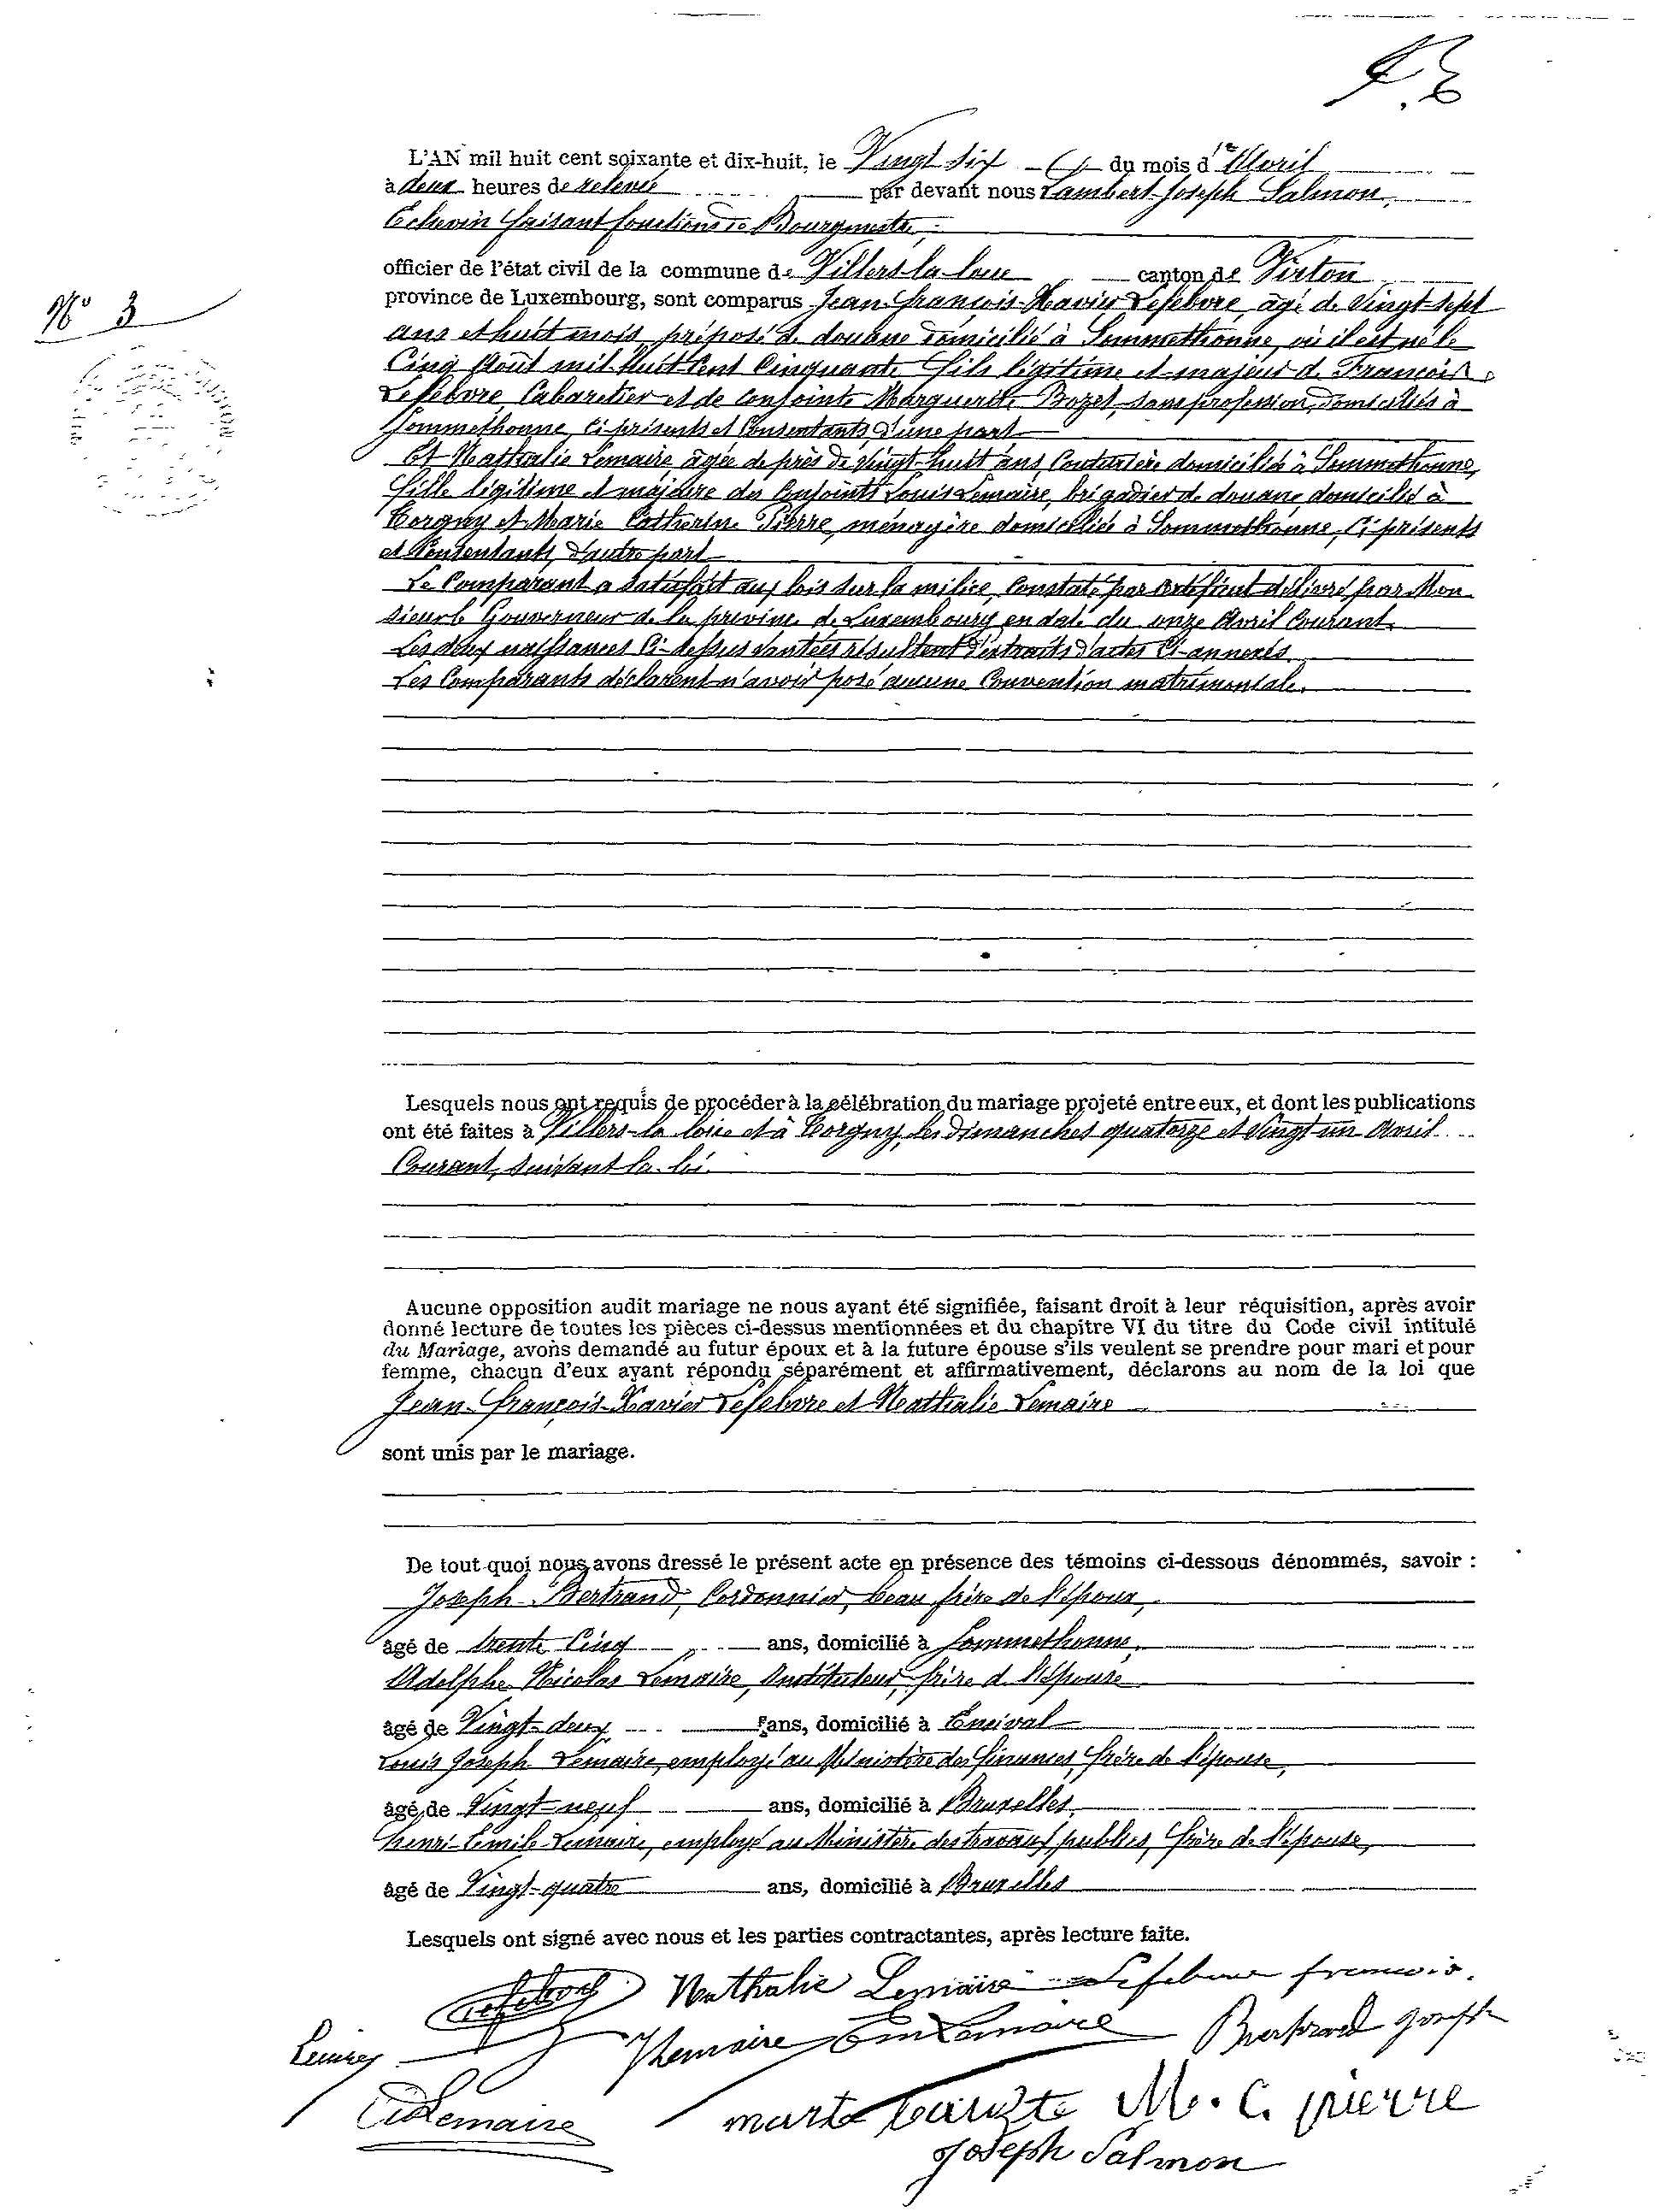 L'AN mil huit cent soixante et dix-huit, le Vingt six du mois d'Avril
N° 3
à deux heures de relevée par devant nous Lambert Joseph Salmon,
Echevin faisant fonctions de Bourgmestre,
officier de l'état civil de la commune de Villers-la-loue canton de Virton
province de Luxembourg, sont comparus Jean-françois-Xavier Lefebvre, âgé de Vingt-sept
ans et huit mois, préposé de douane domicilié à Sommethonne, où il est né le
Cinq Août mil huit Cent Cinquante fils légitime et majeur de François
Lefebvre Cabaretier et de conjointe Marguerite Bozet, sans profession, domiciliés à
Sommethonne, Ci présents et Consentants, d'une part
Et Nathalie Lemaire âgée de près de vingt-huit ans, Couturière domiciliée à Sommethonne,
fille légitime et majeure des Conjoints Louis Lemaire, brigadier de douane, domicilié à
Torgny et Marie Catherine Pierre, ménagère domiciliée à Sommethonne, Ci présents
et Consentants, d'autre part
Le Comparant a satisfait aux lois sur la milice, Constaté par Certificat délivré par Mon
sieur le Gouverneur de la province de Luxembourg en date du onze Avril Courant.
Les deux naissances Ci-dessus résultent d'extraits d'actes Ci-annexés.
Les Comparants déclarent n'avoir posé aucune Convention matrimoniale.
Lesquels nous ont requis de procéder à la célébration du mariage projeté entre eux, et dont les publications
ont été faites à Villers-la loue et à Torgny, les dimanches quatorze et Vingt un Avril
Courant, suivant la loi.
Aucune opposition audit mariage ne nous ayant été signifiée, faisant droit à leur réquisition, après avoir
donné lecture de toutes les pièces ci-dessus mentionnées et du chapitre VI du titre du Code civil intitulé
du Mariage, avons demandé au futur époux et à la future épouse s'ils veulent se prendre pour mari et pour
femme, chacun d'eux ayant répondu séparément et affirmativement, déclarons au nom de la loi que
Jean-françois-Xavier Lefebvre et Nathalie Lemaire
sont unis par le mariage.
De tout quoi nous avons dressé le présent acte en présence des témoins ci-dessous dénommés, savoir :
Joseph Bertrand, Cordonnier, beau frère de l'époux,
âgé de trente Cinq ans, domicilié à Sommethonne,
Adolphe Nicolas Lemaire, Instituteur, frère de l'épouse
âgé de Vingt-deux ans, domicilié à Ensival
Louis Joseph Lemaire, employé au Ministère des finances, frère de l'épouse,
âgé de Vingt-neuf ans, domicilié à Bruxelles,
Henri-Emile Lemaire, employé au Ministère des travaux publics, frère de l'épouse,
âgé de Vingt-quatre ans, domicilié à Bruxelles
Lesquels ont signé avec nous et les parties contractantes, après lecture faite.
Lefebvre Nathalie Lemaire Lefebvre francois.
Lemaire Em Lemaire Bertrand Joseph
Lemaire M. C. pierre
Joseph Salmon